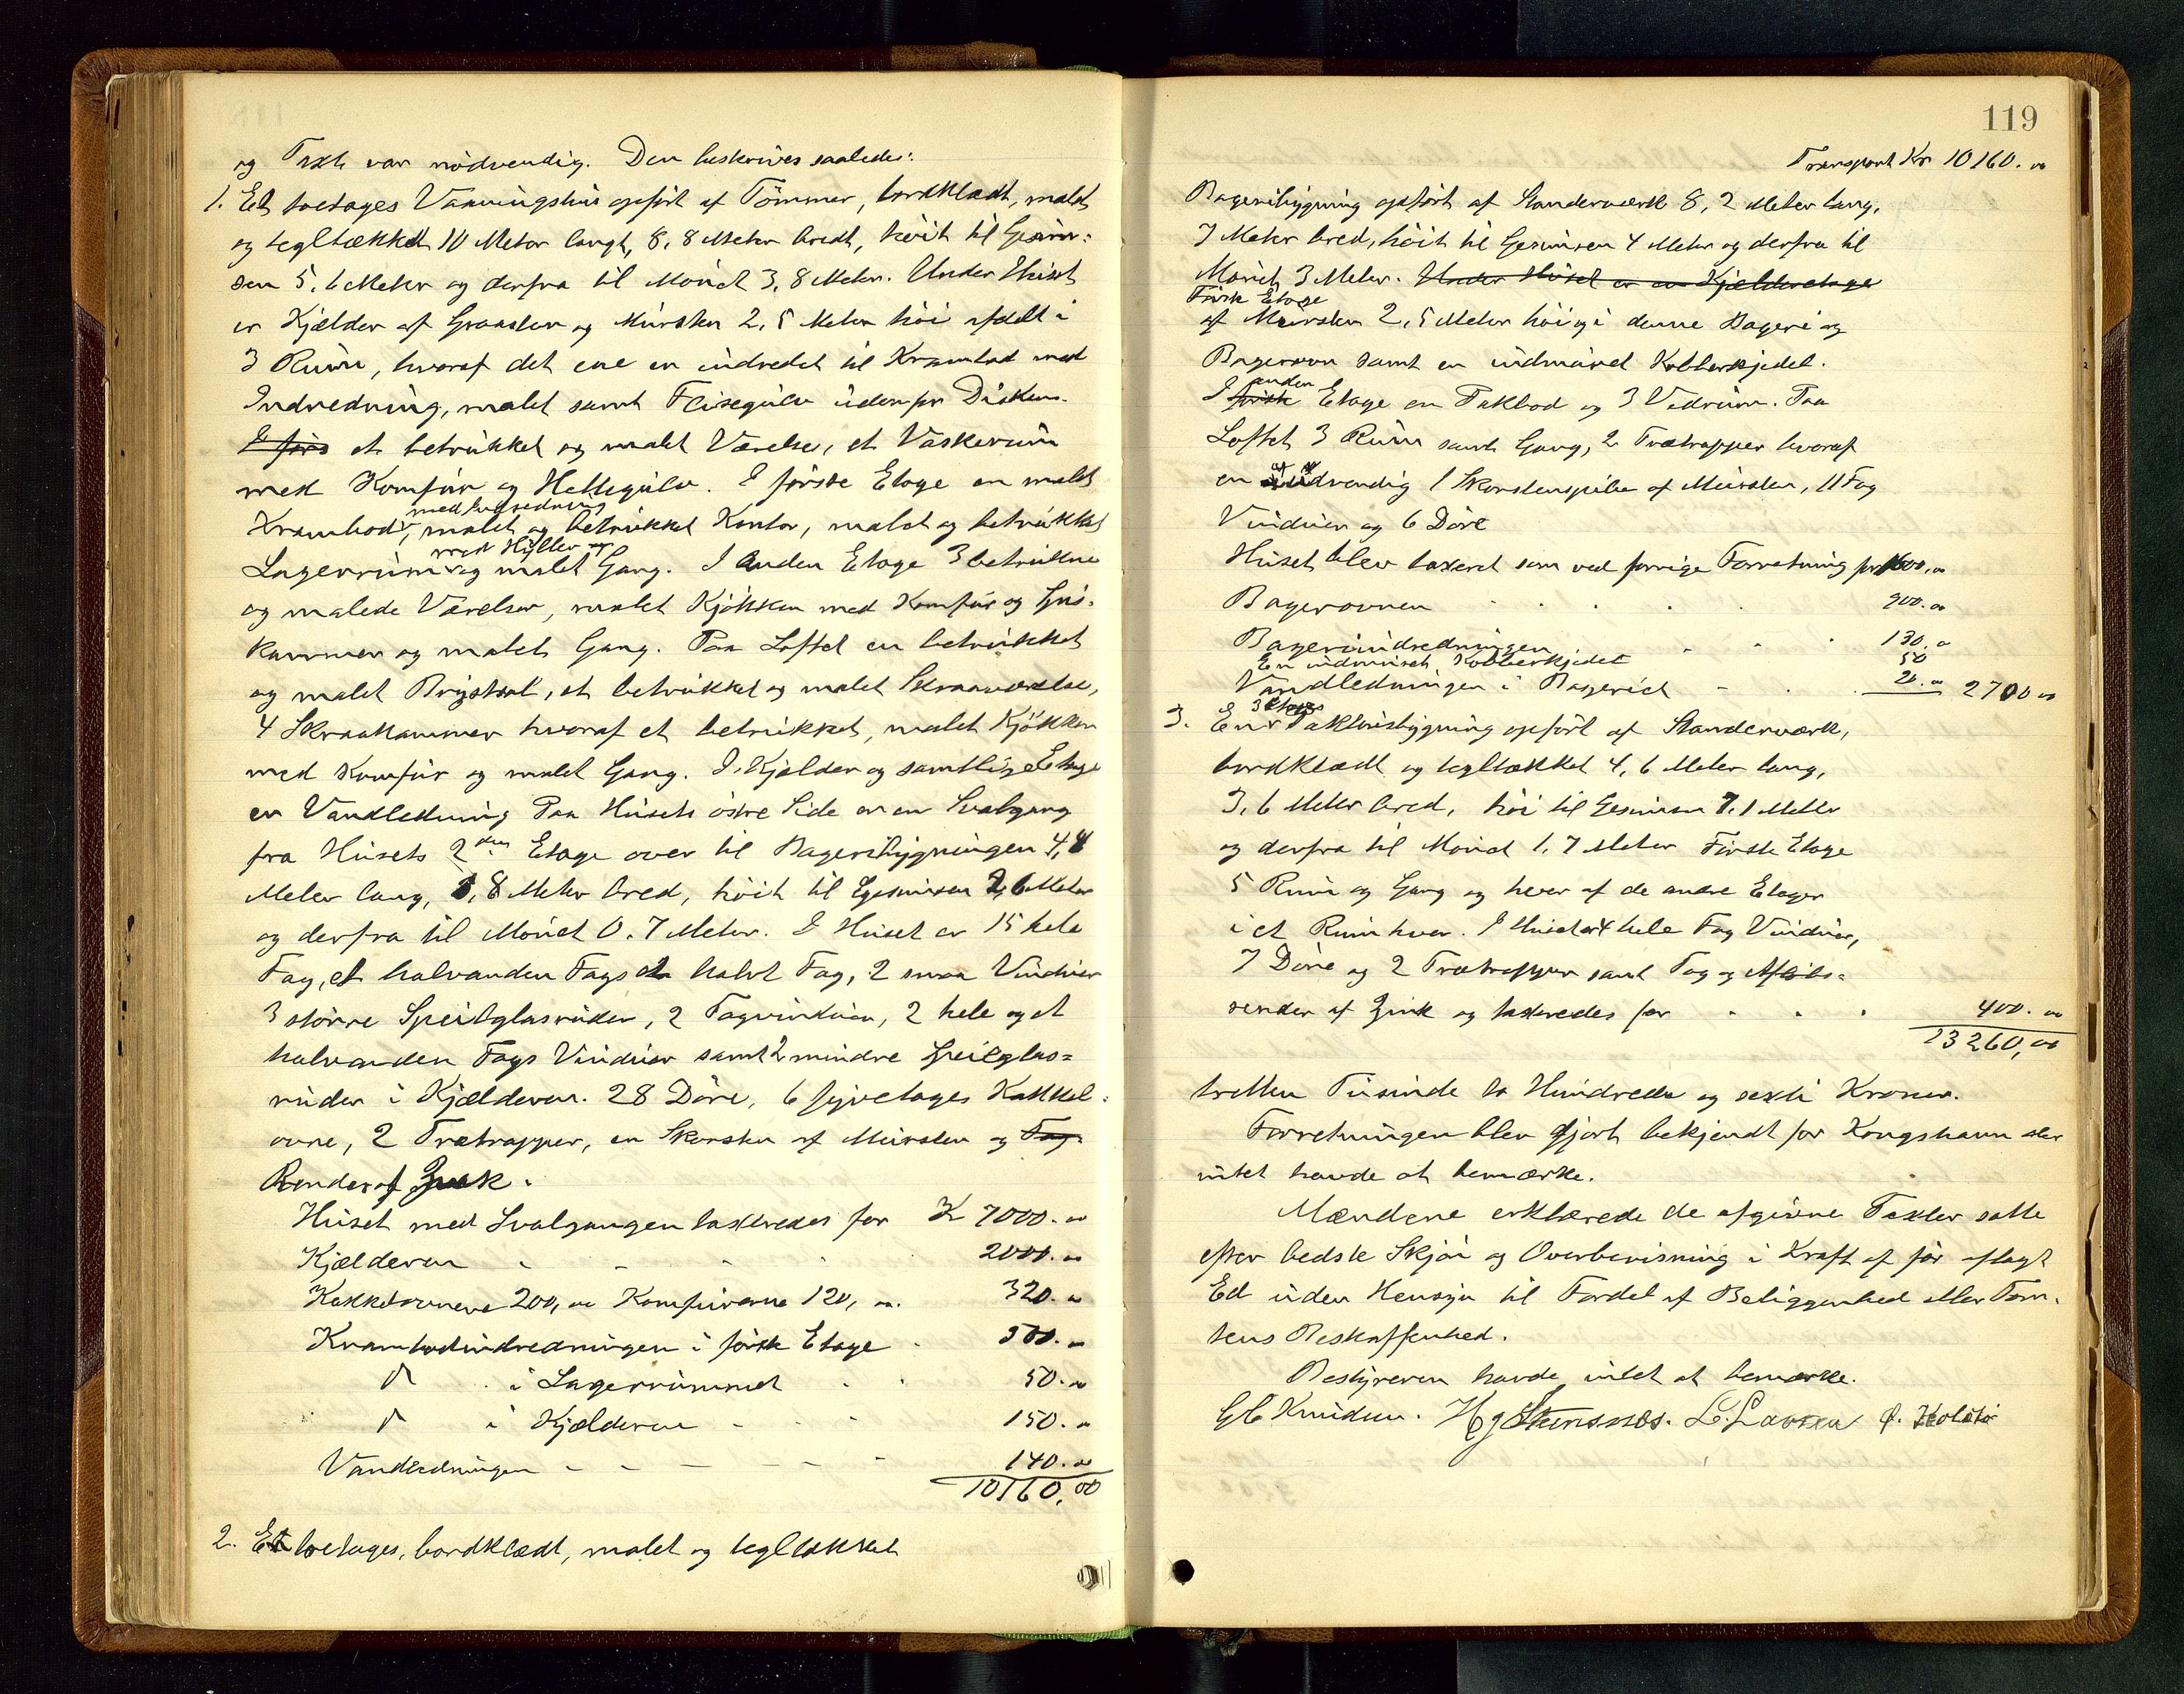 og Taxt var nödvendig. Den beskrives saaledes:
1. Et toetages Vaaningshus opfört af Tömmer, bordklædt, malet
og tegltækket 10 Meter langt, 8,8 Meter bredt, höit til Gesim-
sen 5,6 Meter og derfra til Mönet 3,8 Meter. Under Huset
er Kjælder af Graasten og Mursten 2,5 Meter höi afdelt i
3 Rum, hvoraf det ene er indredet til Krambod med
Indredning, malet samt Flisegulv udenfor Disken.
I förs et betrukket og malet Værelse, et Vaskerum
med Komfur og Hellegulv. I förste Etage en malet
med Indredning
Krambod, malet og betrukket Kontor, malet og betrukket
med Hyller og
Lagerrum og malet Gang. I anden Etage 3 betrukne
og malede Værelser, malet Kjökken med Komfur og Spis-
kammer og malet Gang. Paa Loftet en betrukket
og malet Brystsal, et betrukket og malet Skraaværelse,
4 Skraakammer hvoraf et betrukket, malet Kjökken
med Komfur og malet Gang. I Kjælder og samtlige Etage
er Vandledning Paa Husets östre Side er en Svalgang
fra Husets 2den Etage over til Bageribygningen 4,4
Meter lang, 1,8 Meter bred, höit til Gesimsen 2,6 Meter
og derfra til Mönet 0.7 Meter. I Huset er 15 hele
Fag, et halvanden Fags et halvt Fag, 2 smaa Vinduer
3 större Speilglasruder, 2 Tagvinduer, 2 hele og et
halvanden Fags Vinduer samt 2 mindre Speilglas=
ruder i Kjælderen. 28 Döre, 6 fyretages Kakkel-
ovne, 2 Trætrapper, en Skorsten af Mursten og Tag-
Render af Zink.
Huset med Svalgangen taxteredes for Kr 7000. 00
Kjælderen 2000. 00
Kakkelovnene 200, 00 Komfurerne 120, 00. 320. 00
Krambodindredningen i förste Etage 500. 00
" i Lagerrummet 50. 00
" i Kjælderen 150. 00
Vandledningen 140. 00
10160,00
2. Et toetages, bordklædt, malet og tegltækket
119
Transport Kr 10160. 00
Bageribygning opfört af Standerværk 8,2 Meter lang,
7 Meter bred, höit til Gesimsen 4 Meter og derfra til
Mönet 3 Meter. Under Huset er en Kjælderetage
Förste Etage
af Mursten 2,5 Meter höi og i denne Bageri og
Bagerovn samt en indmuret Kobberkjedel.
anden
I förste Etage en Pakbod og 3 Vedrum. Paa
Loftet 3 Rum samt Gang, 2 Trætrapper hvoraf
en udvendig 1 Skorstenspibe af Mursten, 11 Fag
Vinduer og 6 Döre
Huset blev taxeret som ved forrige Forretning for 1600,00
Bagerovnen 900. 00
Bageriindredningen 130. 00
En indmuret Kobberkjedel 50
Vandledningen i Bageriet 20. 00 2700 00
3 Etages
3. En Pakhusbygning opfört af Standerværk,
bordklædt og tegltækket 4,6 Meter lang,
3,6 Meter bred, höi til Gesimsen 7,1 Meter
og derfra til Mönet 1,7 Meter Förste Etage
5 Rum og Gang og hver af de andre Etager
i et Rum hver. I Huset er 4 hele Fag Vinduer,
7 Döre og 2 Trætrapper samt Tag og Aflöbs=
render af Zink og taxeredes for 400. 00
13260,00
tretten Tusinde to Hundrede og sexti Kroner.
Forretningen blev gjort bekjendt for Kongshavn der
intet havde at bemærke.
Mændene erklærede de afgivne Taxter satte
efter bedste Skjön og Overbevisning i Kraft af för aflagt
Ed uden Hensyn til Fordel af Beliggenhed eller Tom-
tens Beskaffenhed.
Bestyreren havde intet at bemærke.
G C Knudsen. H J Stensnæs. L. Larsen O. Holstö